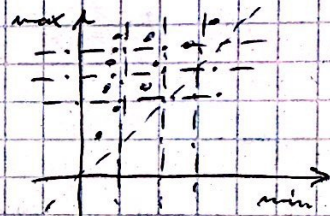 max
min